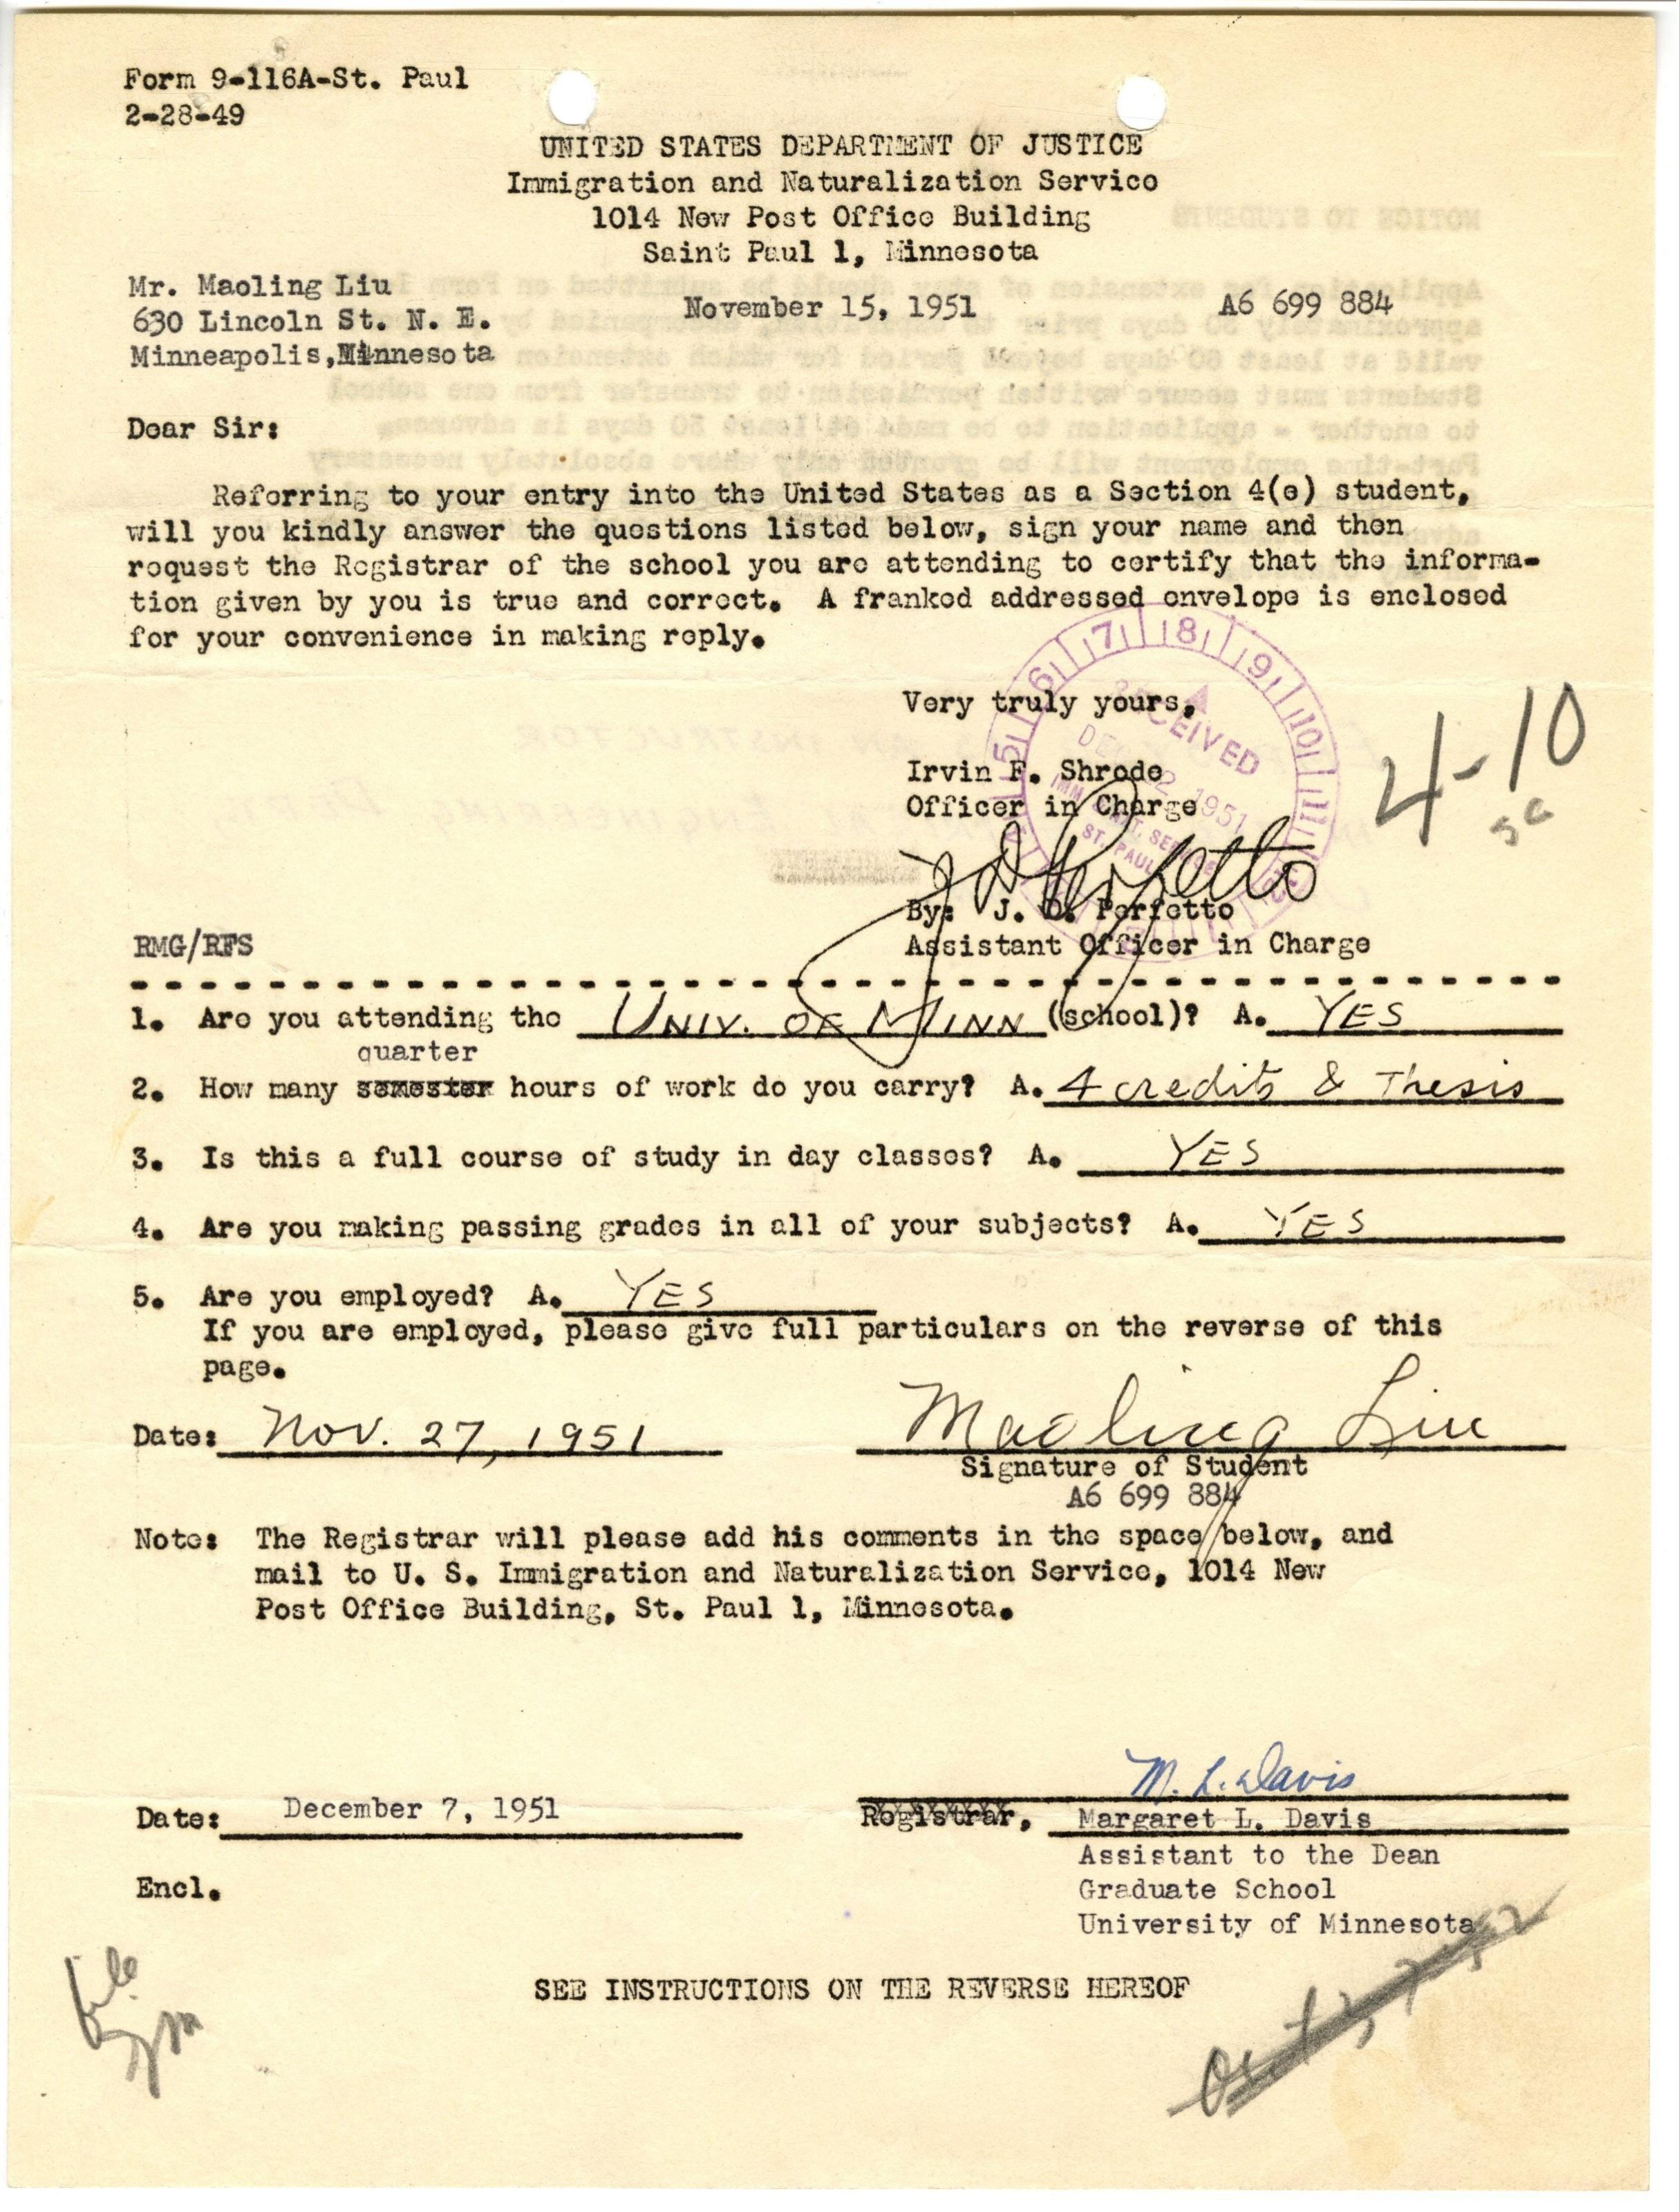 Form 9-116A-St. Paul
2-28-49
UNITED STATES DEPARTMENT OF JUSTICE
Immigration and Naturalization Service
1014 New Post Office Building
Saint Paul 1, Minnesota
Mr. Maoling Liu
630 Lincoln St. N. E.
Minneapolis, Minnesota
November 15, 1951 A6 699 884
Dear Sir:
Referring to your entry into the United States as a Section 4(e) student,
will you kindly answer the questions listed below, sign your name and then
request the Registrar of the school you are attending to certify that the informa-
tion given by you is true and correct. A franked addressed envelope is enclosed
for your convenience in making reply.
Very truly yours,
Irvin F. Shrode
Officer in Charge
J D Perfetto
By: J. D. Perfetto
Assistant Officer in Charge
5 6 7 8 9 10 11
RECEIVED
DEC 1951
ST. PAUL
4-10
RMG/RFS
1. Are you attending the UNIV. OF MINN (school)? A. YES
quarter
2. How many semester hours of work do you carry? A. 4 credits & Thesis
3. Is this a full course of study in day classes? A. YES
4. Are you making passing grades in all of your subjects? A. YES
5. Are you employed? A. YES
If you are employed, please give full particulars on the reverse of this
page.
Date: Nov. 27, 1951 Maoling Liu
Signature of Student
A6 699 884
Note: The Registrar will please add his comments in the space below, and
mail to U. S. Immigration and Naturalization Service, 1014 New
Post Office Building, St. Paul 1, Minnesota.
M. L. Davis
Date: December 7, 1951 Registrar, Margaret L. Davis
Assistant to the Dean
Encl. Graduate School
University of Minnesota
file
SEE INSTRUCTIONS ON THE REVERSE HEREOF